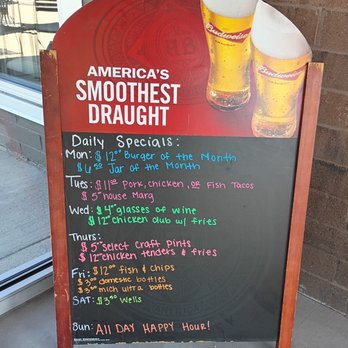 Budweiser
Budweiser
AMERICA'S
SMOOTHEST
DRAUGHT
Daily Specials:
Mon: $12.00 Burger of the Month
$6.50 Jar of the Month
Tues: $11 Pork, chicken, or Fish Tacos
$5 house Marg
Wed: $4 glasses of wine
$12 chicken club w/ fries
Thurs:
$5 select craft pints
$12 chicken tenders & fries
Fri: $12.00 fish & chips
$3.00 domestic bottles
$3.00 mich ultra bottles
SAT: $3.00 Wells
Sun: ALL DAY HAPPY HOUR!